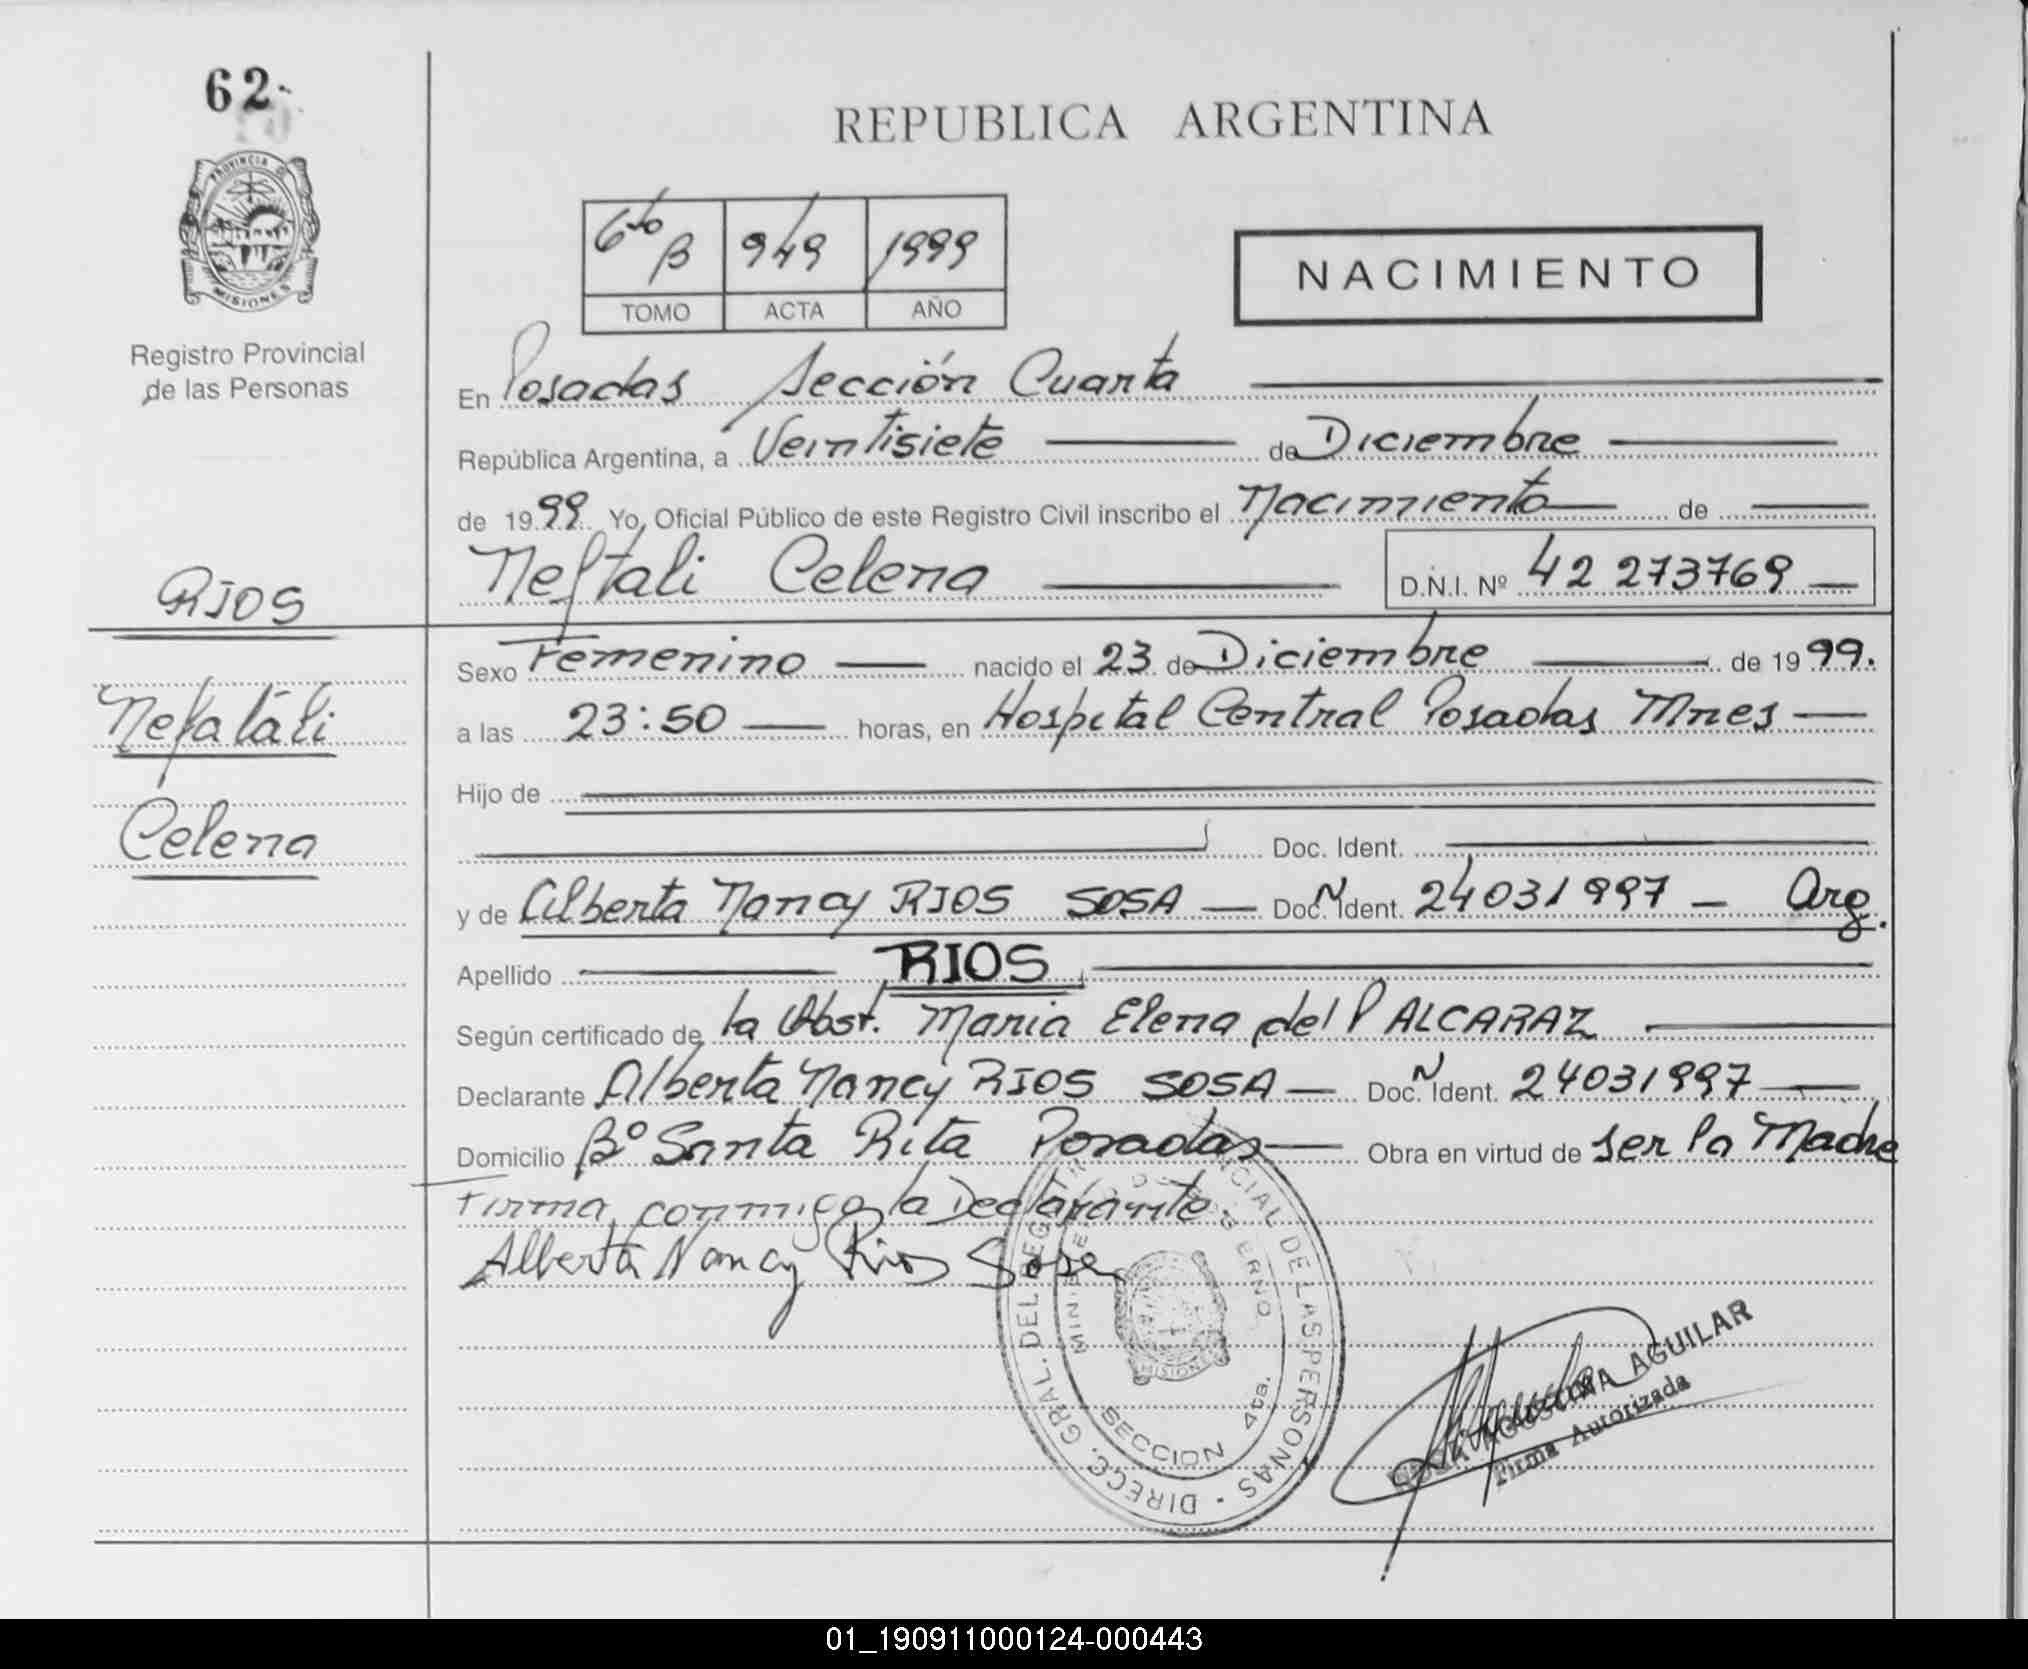 62.
PROVINCIA DE
MISIONES
Registro Provincial
de las Personas
RIOS
Nefatáli
Celena
REPUBLICA ARGENTINA
6to B 949 1999
TOMO ACTA AÑO
NACIMIENTO
En Posadas Sección Cuarta
República Argentina, a Veintisiete de Diciembre
de 1999 Yo, Oficial Público de este Registro Civil inscribo el Nacimiento de
Neftali Celena D.N.I. Nº 42 273769
Sexo Femenino nacido el 23 de Diciembre de 1999.
a las 23:50 horas, en Hospital Central Posadas Mnes
Hijo de
Doc. Ident.
y de Alberta Nancy RIOS SOSA Doc. N Ident. 24031997 - Arg.
Apellido RIOS
Según certificado de la Obst. Maria Elena del P ALCARAZ
Declarante Alberta Nancy RIOS SOSA Doc. N Ident. 24031997
Domicilio Bº Santa Rita Posadas Obra en virtud de ser la Madre
Firma conmigo la Declarante.
Alberta Nancy Rios Sosa
DIRECC. GRAL. DEL REGISTRO PROVINCIAL DE LAS PERSONAS
MINISTERIO DE GOBIERNO
MISIONES
SECCION 4ta.
AGUILAR
Firma Autorizada
01_190911000124-000443